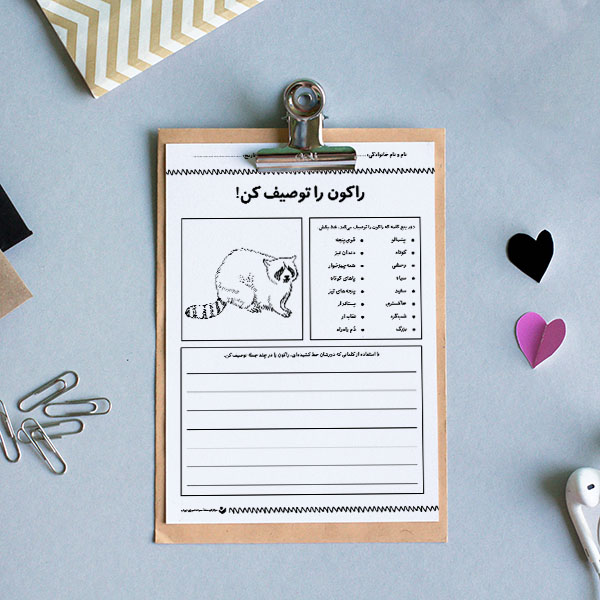 نام و نام خانوادگی:
تاریخ:
راکون را توصیف کن!
دور پنج کلمه که راکون را توصیف می‌کند، خط بکش.
پشمالو
کوتاه
وحشی
سیاه
سفید
خاکستری
شب‌گرد
بزرگ
قوی‌پنجه
دندان تیز
همه‌چیزخوار
پاهای کوتاه
پنجه‌های تیز
پستاندار
نقاب‌دار
دُم راه‌راه
با استفاده از کلماتی که دورشان خط کشیده‌ای، راکون را در چند جمله توصیف کن.